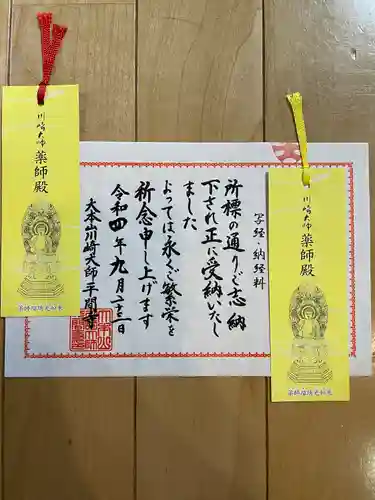 写経・納経料
所標の通りご志納
下され正に受納いたし
ました
よっては永くご繁栄を
祈念申し上げます
令和四年九月二三日
大本山川崎大師平間寺
川崎大師
薬師殿
薬師瑠璃光如来
川崎大師
薬師殿
薬師瑠璃光如来